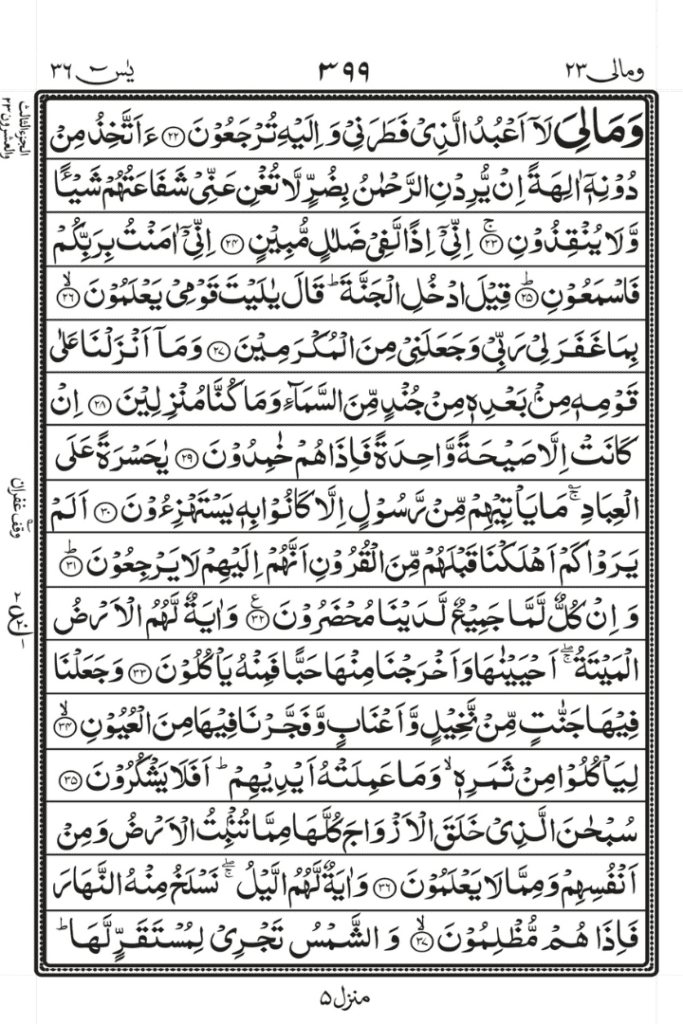 ومالی ۲۳
۳۹۹
یٰسٓ ۳۶
الجزء الثالث والعشرون ۲۳
وَمَالِیَ لَاۤ اَعْبُدُ الَّذِیْ فَطَرَنِیْ وَاِلَیْهِ تُرْجَعُوْنَ ﴿۲۲﴾ ءَاَتَّخِذُ مِنْ
دُوْنِهٖۤ اٰلِهَةً اِنْ یُّرِدْنِ الرَّحْمٰنُ بِضُرٍّ لَّا تُغْنِ عَنِّیْ شَفَاعَتُهُمْ شَیْـًٔا
وَّلَا یُنْقِذُوْنِ ۚ﴿۲۳﴾ اِنِّیْۤ اِذًا لَّفِیْ ضَلٰلٍ مُّبِیْنٍ ﴿۲۴﴾ اِنِّیْۤ اٰمَنْتُ بِرَبِّكُمْ
فَاسْمَعُوْنِ ؕ﴿۲۵﴾ قِیْلَ ادْخُلِ الْجَنَّةَ ؕ قَالَ یٰلَیْتَ قَوْمِیْ یَعْلَمُوْنَ ۙ﴿۲۶﴾
بِمَا غَفَرَ لِیْ رَبِّیْ وَجَعَلَنِیْ مِنَ الْمُكْرَمِیْنَ ﴿۲۷﴾ وَمَاۤ اَنْزَلْنَا عَلٰی
قَوْمِهٖ مِنْۢ بَعْدِهٖ مِنْ جُنْدٍ مِّنَ السَّمَآءِ وَمَا كُنَّا مُنْزِلِیْنَ ﴿۲۸﴾ اِنْ
كَانَتْ اِلَّا صَیْحَةً وَّاحِدَةً فَاِذَا هُمْ خٰمِدُوْنَ ﴿۲۹﴾ یٰحَسْرَةً عَلَی
الْعِبَادِ ۚؔ مَا یَاْتِیْهِمْ مِّنْ رَّسُوْلٍ اِلَّا كَانُوْا بِهٖ یَسْتَهْزِءُوْنَ ﴿۳۰﴾ اَلَمْ
وقف غفران
یَرَوْا كَمْ اَهْلَكْنَا قَبْلَهُمْ مِّنَ الْقُرُوْنِ اَنَّهُمْ اِلَیْهِمْ لَا یَرْجِعُوْنَ ؕ﴿۳۱﴾
وَاِنْ كُلٌّ لَّمَّا جَمِیْعٌ لَّدَیْنَا مُحْضَرُوْنَ ﴿۳۲﴾ ع وَاٰیَةٌ لَّهُمُ الْاَرْضُ
الْمَیْتَةُ ۚۖ اَحْیَیْنٰهَا وَاَخْرَجْنَا مِنْهَا حَبًّا فَمِنْهُ یَاْكُلُوْنَ ﴿۳۳﴾ وَجَعَلْنَا
فِیْهَا جَنّٰتٍ مِّنْ نَّخِیْلٍ وَّاَعْنَابٍ وَّفَجَّرْنَا فِیْهَا مِنَ الْعُیُوْنِ ۙ﴿۳۴﴾
لِیَاْكُلُوْا مِنْ ثَمَرِهٖ ۙ وَمَا عَمِلَتْهُ اَیْدِیْهِمْ ؕ اَفَلَا یَشْكُرُوْنَ ﴿۳۵﴾
سُبْحٰنَ الَّذِیْ خَلَقَ الْاَزْوَاجَ كُلَّهَا مِمَّا تُنْۢبِتُ الْاَرْضُ وَمِنْ
اَنْفُسِهِمْ وَمِمَّا لَا یَعْلَمُوْنَ ﴿۳۶﴾ وَاٰیَةٌ لَّهُمُ الَّیْلُ ۚۖ نَسْلَخُ مِنْهُ النَّهَارَ
فَاِذَا هُمْ مُّظْلِمُوْنَ ۙ﴿۳۷﴾ وَالشَّمْسُ تَجْرِیْ لِمُسْتَقَرٍّ لَّهَا ؕ
منزل ۵